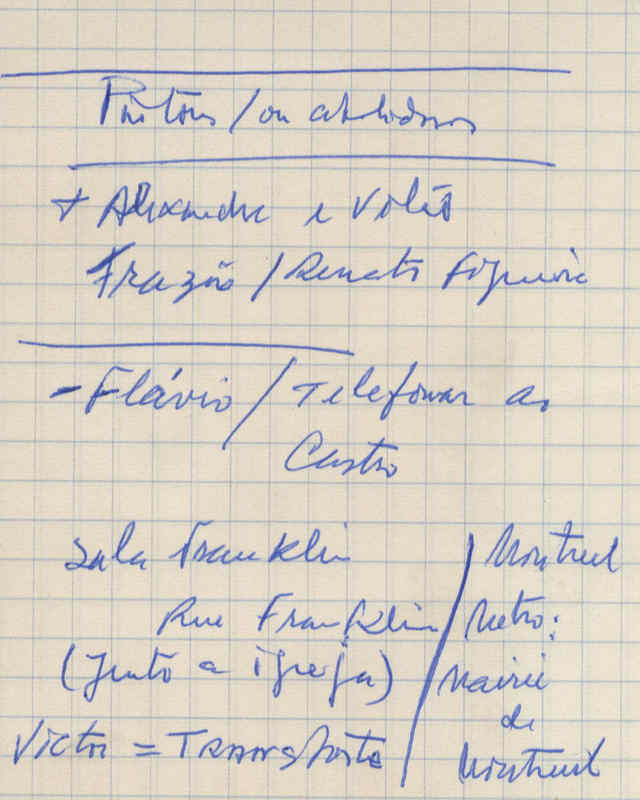 /ou
+ Alexandre e
Frazão / Renato
- Flávio / Telefonar ao
Castro
Sala Franklin
Rue Franklin
(Junto a igreja)
Victor = Transporte
Montreuil
Metro:
Mairie
de
Montreuil